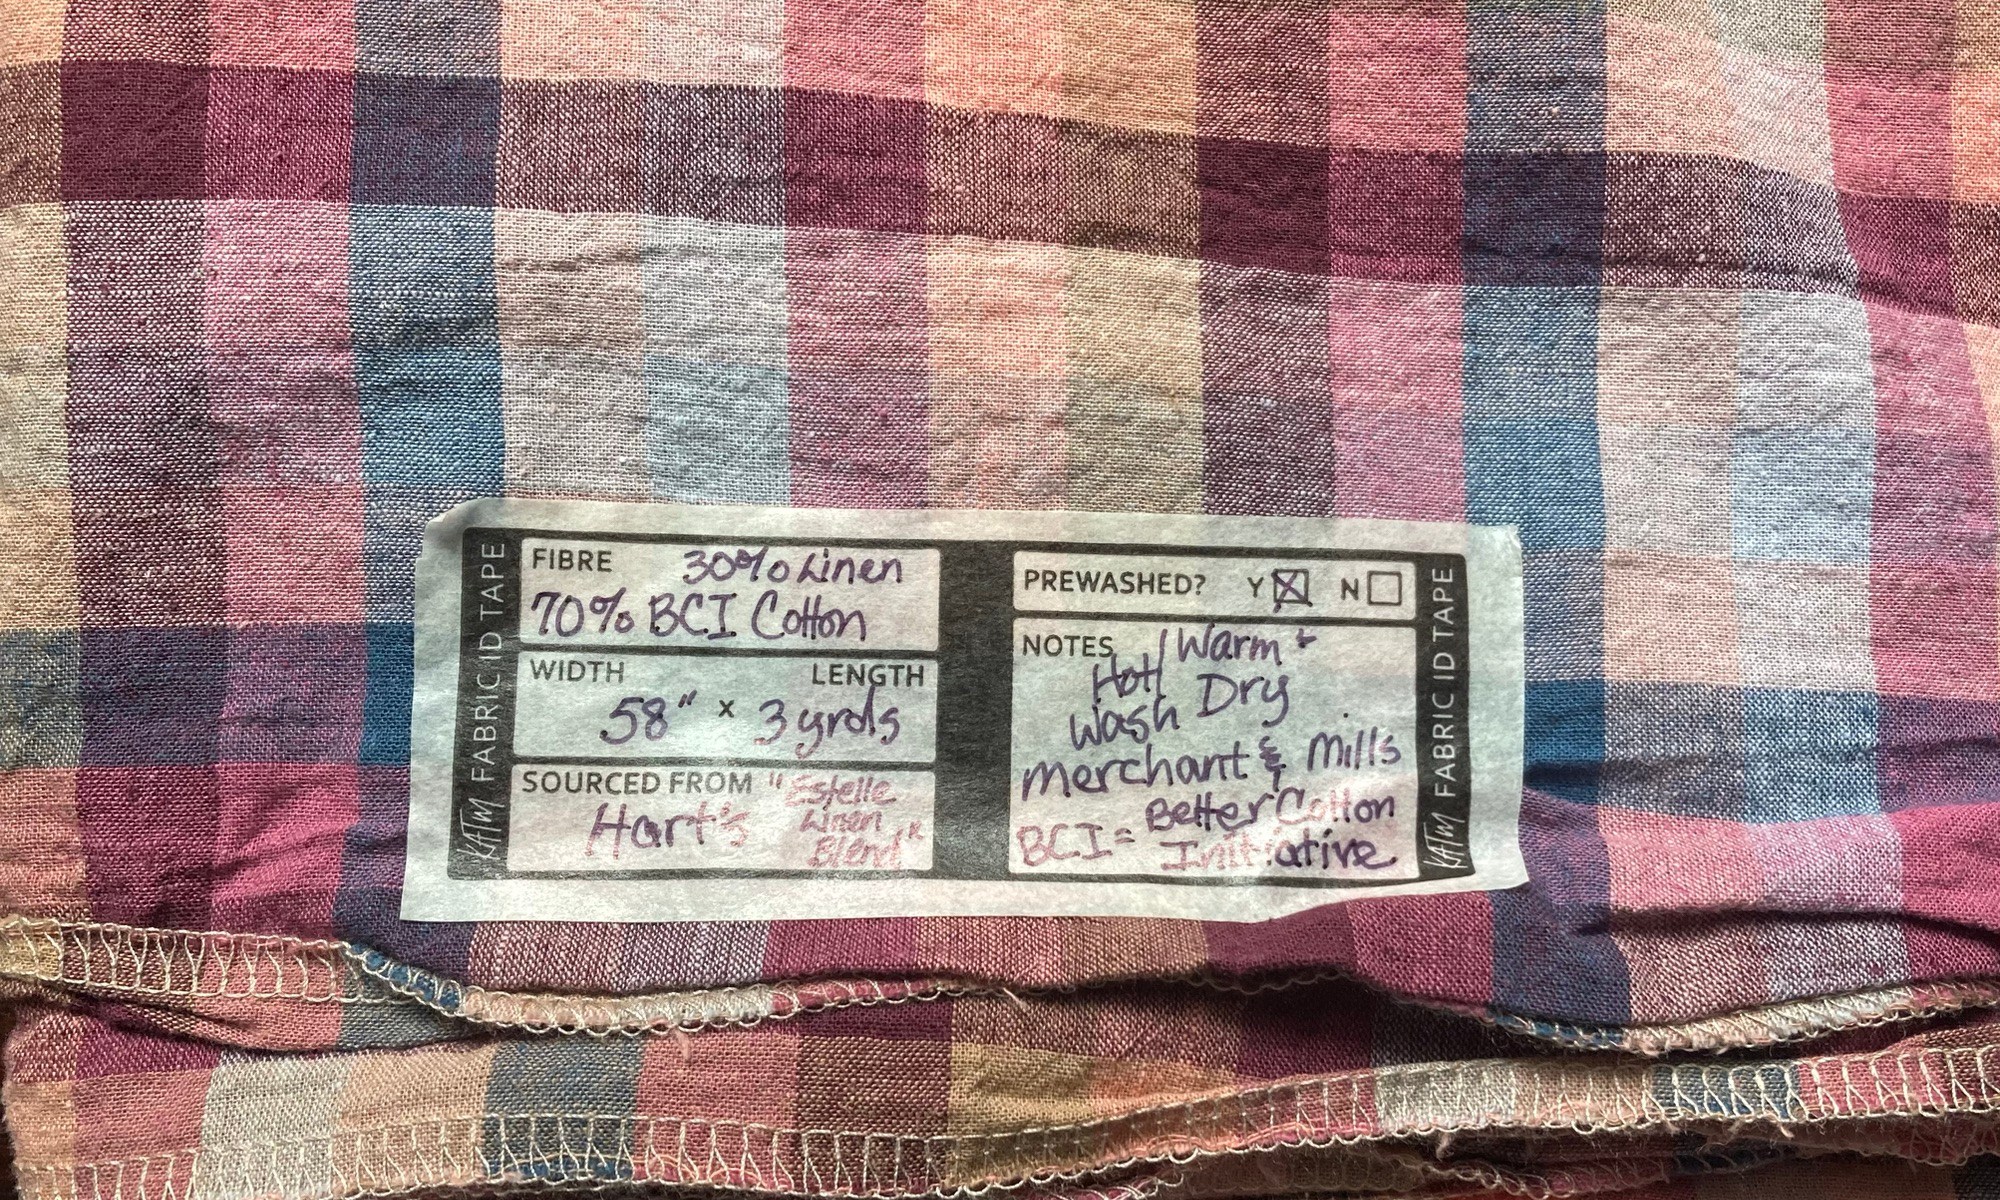 KATM FABRIC ID TAPE
FIBRE 30% Linen
70% BCI Cotton
WIDTH LENGTH
58" x 3 yrds
SOURCED FROM "Estelle
Hart's Linen
Blend"
PREWASHED? Y ☒ N ☐
NOTES Hot/Warm +
Wash Dry
Merchant & Mills
BCI = Better Cotton
Initiative
KATM FABRIC ID TAPE